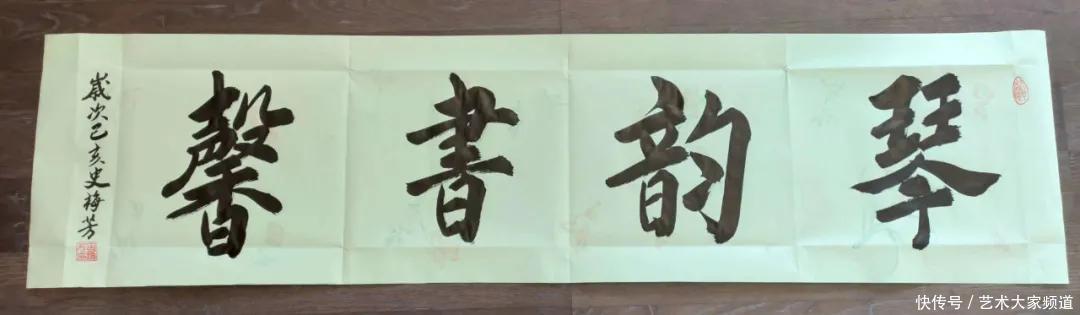 琴韵書馨
歲次己亥史梅芳
快传号 / 艺术大家频道